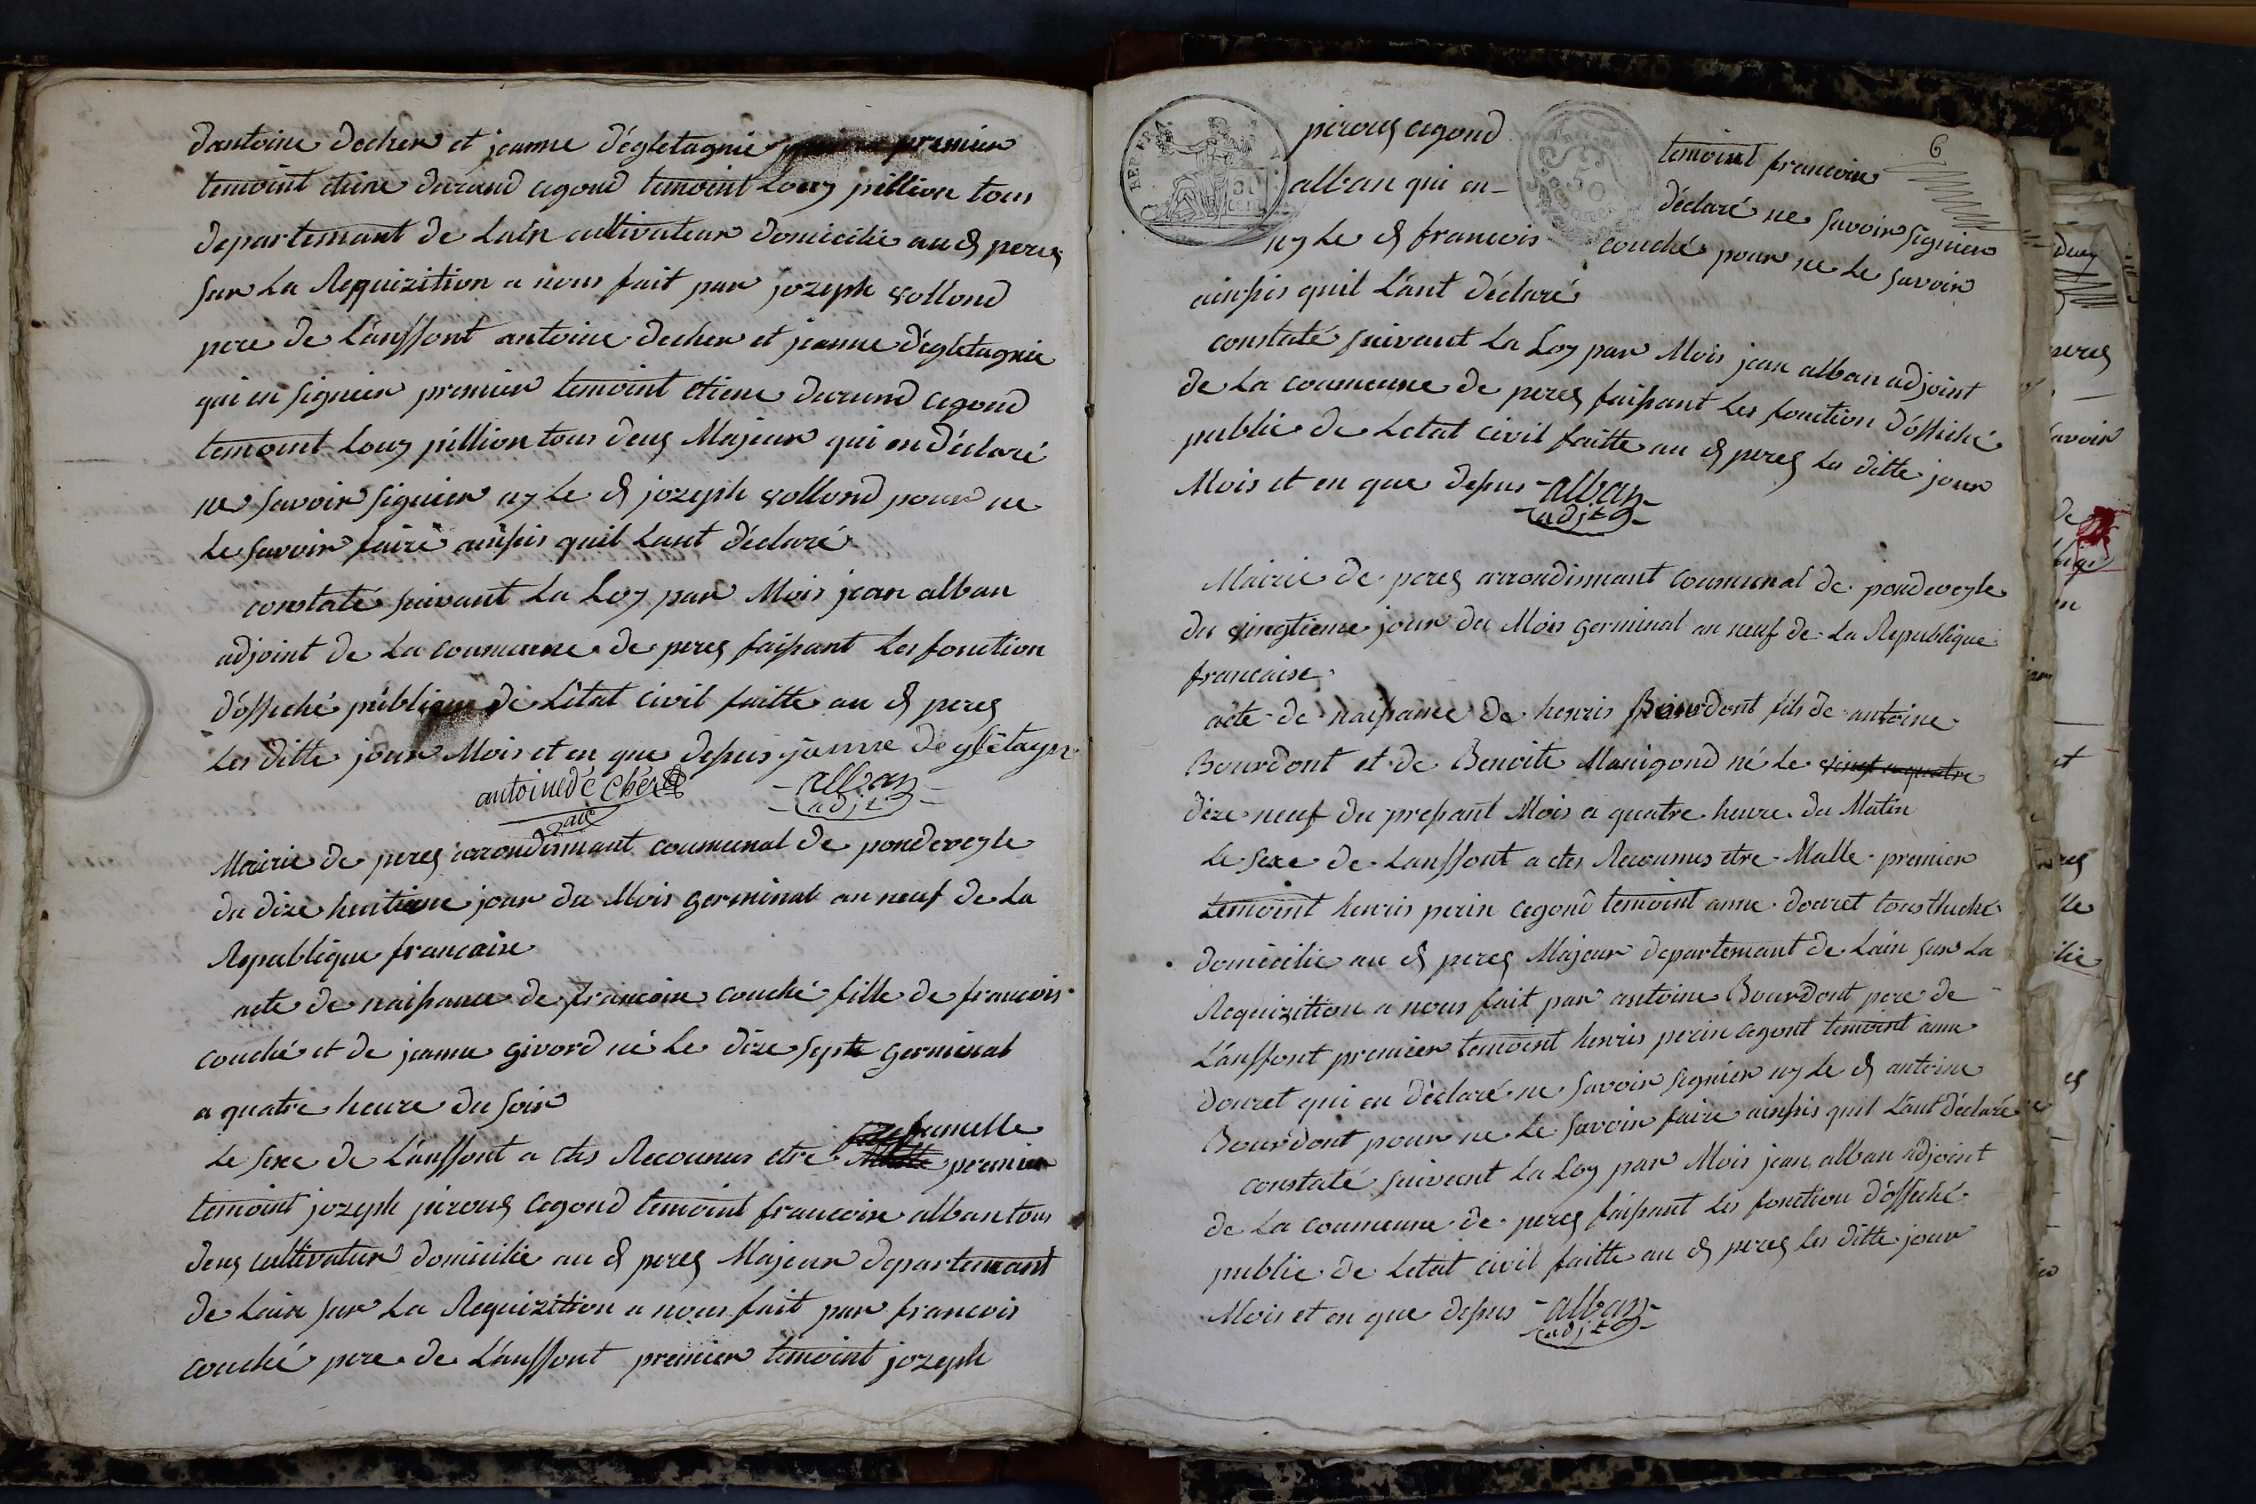 dantoine decher et jeanne dégletagnie premier
temoint etiene durand cegond temoint Louy pillion tous
departemant de Lain cultivateur domicilie au d peres
sur La Requizition a nous fait par jozeph vollond
pere de Lanffont antoine decher et jeanne dégletagnie
qui in signier premier temoint etiene durand cegond
temoint Louy pillion tous deus Majeur qui on déclaré
ne savoir signier ny le d jozeph vollond pour ne
Le savoir faire ainsis quil Lant déclaré
constaté suivant La Loy par Mois jean alban
adjoint de La coumeune de peres faisant Les fonction
d'offiché publique de Létat civil faitte au d peres
Les ditte jour Mois et en que depus janne deglétagne
antoine dé chér
alban
adjt
Mairie de peres arrondismant coumunal de pondeveyle
du dize huitieme jour du Mois germinal an neuf de La
Republique francaise
acte de naissance de francoise couché fille de francois
couché et de jeanne givord né Le dize septe germinal
a quatre heure du soir
femelle
Le sexe de Lanffont a etes Recounus etre premier
temoint jozeph pirous cegond temoint francoise alban tous
deus cultivateur domicilie au d peres Majeur departemant
de Lain sur La Requizition a nous fait par francois
couché pere de Lanffont premier temoint jozeph
6
REP. FRA.
pirous cegond temoint francoise
alban qui on déclaré ne savoir signier
ny Le d francois couché pour ne Le savoir
ainsis quil Lant déclaré
constaté suivant La Loy par Mois jean alban adjoint
de La coumeune de peres faisant Les fonction d'offiché
public de Letat civil faitte au d peres Les ditte jour
Mois et en que depus alban
adjt
Mairie de peres arrondismant coumunal de pondeveyle
du vingtieme jour du Mois germinal an neuf de La Republique
francaise
acte de naissance de henris Bourdont fils de antoine
Bourdont et de Benoite Manigond né Le vingt quatre
dize neuf du presant Mois a quatre heure du Matin
Le sexe de Lanffont a etes Recounus etre Malle premier
temoint henris perin cegond temoint anne douret tous
domicilie au d peres Majeur departemant de Lain sur La
Requizition a nous fait par antoine Bourdont pere de
Lanffont premier temoint henris perin cegont temoint anne
douret qui on déclaré ne savoir signier ny Le d antoine
Bourdont pour ne Le savoir faire ainsis quil Lant déclaré
constaté suivant La Loy par Mois jean alban adjoint
de La coumeune de peres faisant Les fonction d'offeché
public de Letat civil faitte au d peres Les ditte jour
Mois et en que depus alban
adjt